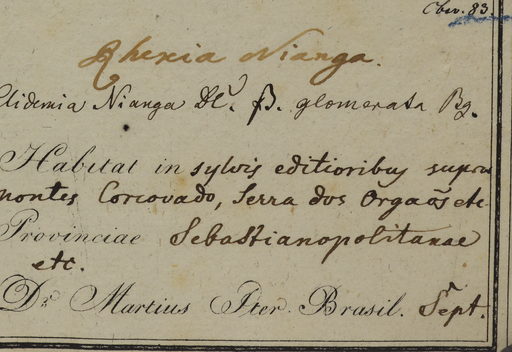 Obser. 83.
Rhexia Nianga.
Clidemia Nianga DC. β. glomerata Bg.
Habitat in sylvis editioribus supra
montes Corcovado, Serra dos Orgaõs etc
Provinciae Sebastianopolitanae
etc.
Dr. Martius Iter Brasil. Sept.